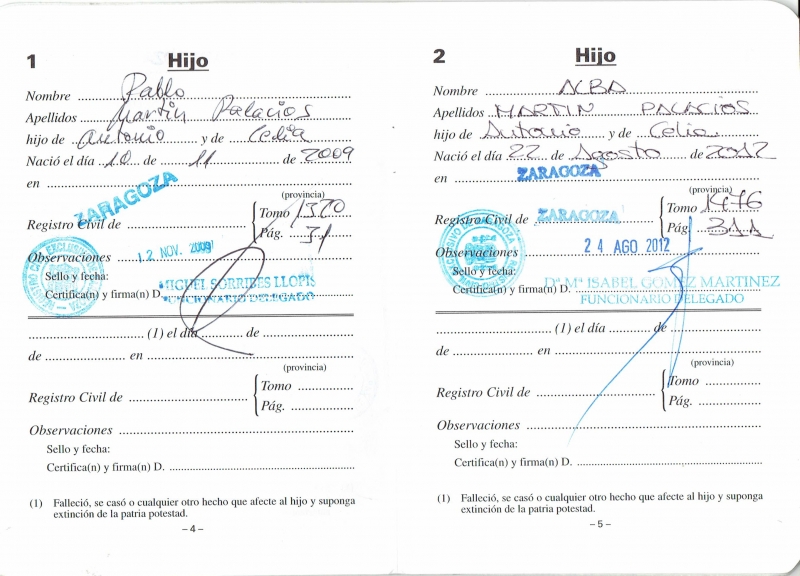 1 Hijo
Nombre Pablo
Apellidos Martin Palacios
hijo de Antonio y de Celia
Nació el día 10 de 11 de 2009
en ZARAGOZA
(provincia)
Registro Civil de
Tomo 1320
Pág. 31
Observaciones 12 NOV. 2009
Sello y fecha:
Certifica(n) y firma(n) D. MIGUEL SORRIBES LLOPIS
FUNCIONARIO DELEGADO
(1) el día de
de de en
(provincia)
Registro Civil de
Tomo
Pág.
Observaciones
Sello y fecha:
Certifica(n) y firma(n) D.
(1) Falleció, se casó o cualquier otro hecho que afecte al hijo y suponga
extinción de la patria potestad.
– 4 –
2 Hijo
Nombre ALBA
Apellidos MARTIN PALACIOS
hijo de Antonio y de Celia
Nació el día 22 de Agosto de 2012
en ZARAGOZA
(provincia)
Registro Civil de ZARAGOZA
Tomo 1476
Pág. 311
Observaciones 24 AGO 2012
Sello y fecha:
Certifica(n) y firma(n) D. Dª Mª ISABEL GOMEZ MARTINEZ
FUNCIONARIO DELEGADO
(1) el día de
de de en
(provincia)
Registro Civil de
Tomo
Pág.
Observaciones
Sello y fecha:
Certifica(n) y firma(n) D.
(1) Falleció, se casó o cualquier otro hecho que afecte al hijo y suponga
extinción de la patria potestad.
– 5 –